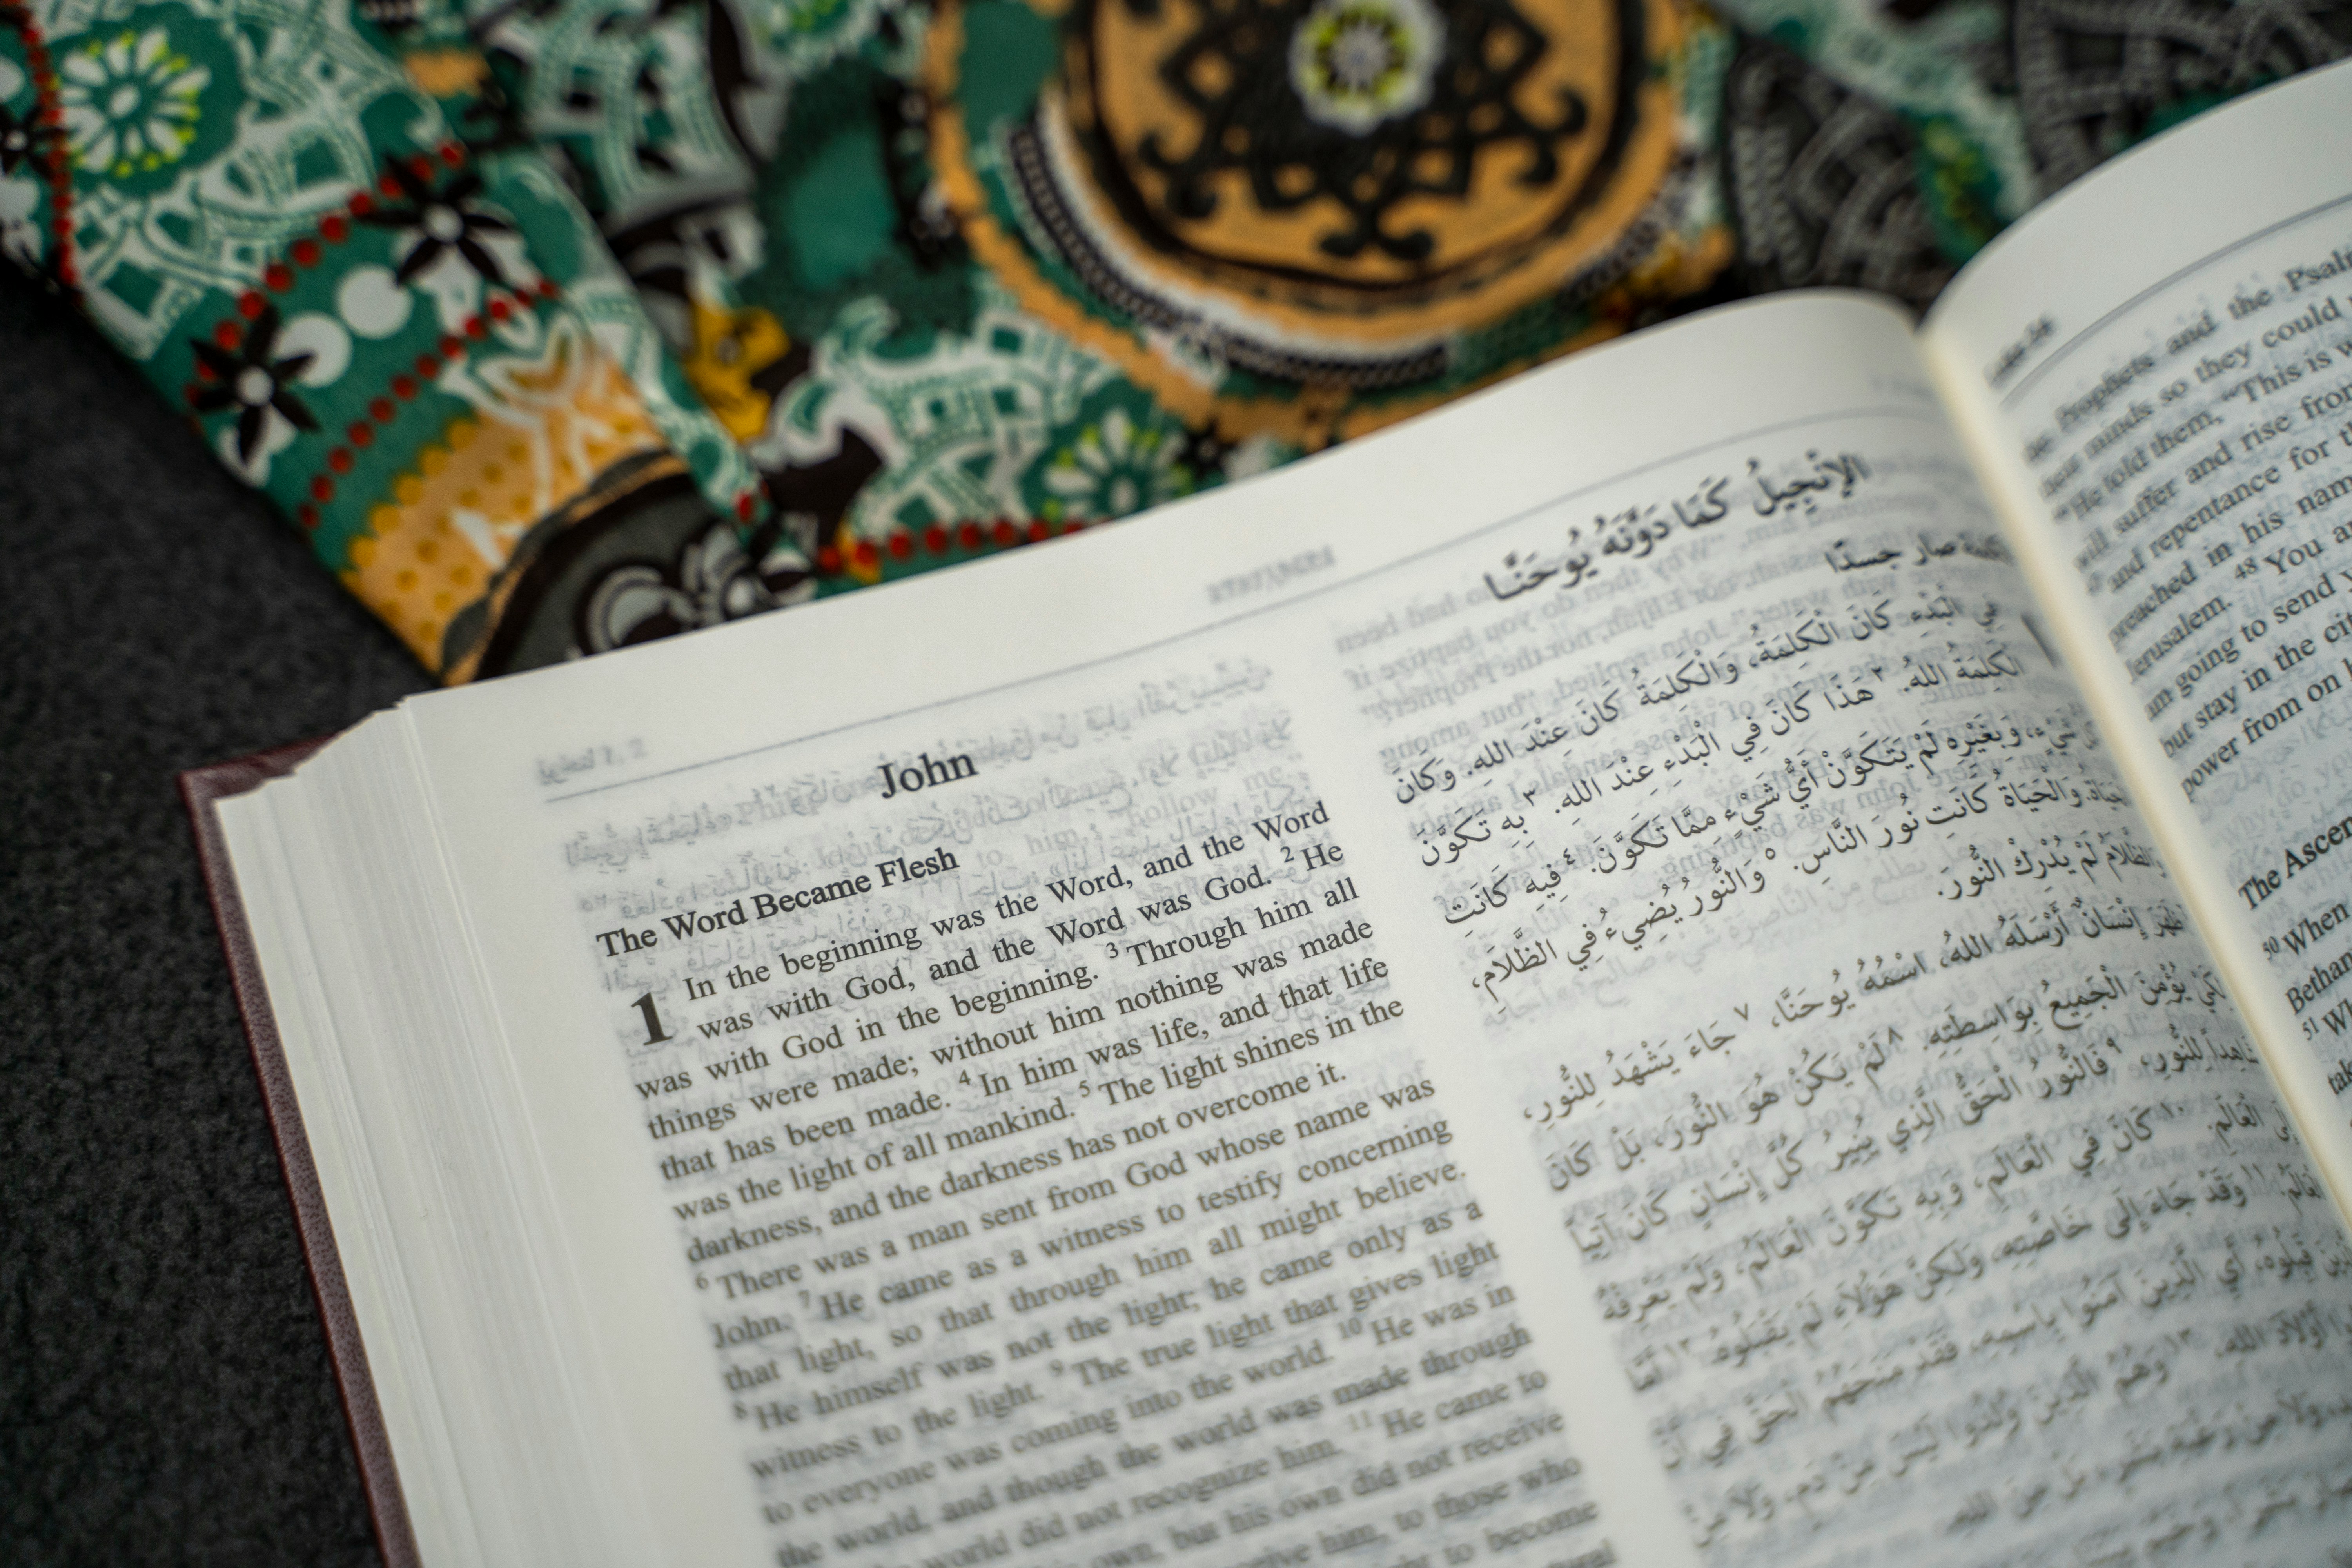 John
The Word Became Flesh
1 In the beginning was the Word, and the Word
was with God, and the Word was God. 2 He
was with God in the beginning. 3 Through him all
things were made; without him nothing was made
that has been made. 4 In him was life, and that life
was the light of all mankind. 5 The light shines in the
darkness, and the darkness has not overcome it.
6 There was a man sent from God whose name was
John. 7 He came as a witness to testify concerning
that light, so that through him all might believe.
8 He himself was not the light; he came only as a
witness to the light. 9 The true light that gives light
to everyone was coming into the world. 10 He was in
the world, and though the world was made through
world did not recognize him. 11 He came to
own, but his own did not receive
him, to those who
to become
الإِنْجِيلُ كَمَا دَوَّنَهُ يُوحَنَّا
صار جسدًا
فِي الْبَدْءِ كَانَ الْكَلِمَةُ، وَالْكَلِمَةُ كَانَ عِنْدَ اللهِ. وَكَانَ
الْكَلِمَةُ اللهَ. ٢ هَذَا كَانَ فِي الْبَدْءِ عِنْدَ اللهِ. ٣ بِهِ تَكَوَّنَ
شَيْءٍ، وَبِغَيْرِهِ لَمْ يَتَكَوَّنْ أَيُّ شَيْءٍ مِمَّا تَكَوَّنَ. ٤ فِيهِ كَانَتِ
وَالْحَيَاةُ كَانَتِ نُورَ النَّاسِ. ٥ وَالنُّورُ يُضِيءُ فِي الظَّلَامِ،
وَالظَّلَامُ لَمْ يُدْرِكْ النُّورَ.
ظَهَرَ إِنْسَانٌ أَرْسَلَهُ اللهُ، اسْمُهُ يُوحَنَّا، ٧ جَاءَ يَشْهَدُ لِلنُّورِ،
يُؤْمِنَ الْجَمِيعُ بِوَاسِطَتِهِ. ٨ لَمْ يَكُنْ هُوَ النُّورَ، بَلْ كَانَ
لِلنُّورِ، ٩ فَالنُّورُ الْحَقُّ الَّذِي يُنِيرُ كُلَّ إِنْسَانٍ كَانَ آتِياً
الْعَالَمِ. ١٠ كَانَ فِي الْعَالَمِ، وَبِهِ تَكَوَّنَ الْعَالَمُ، وَلَمْ يَعْرِفْهُ
١١ وَقَدْ جَاءَ إِلَى خَاصَّتِهِ، وَلكِنَّ هؤُلَاءِ لَمْ يَقْبَلُوهُ. ١٢ أَمَّا
قَبِلُوهُ، أَيِ الَّذِينَ آمَنُوا بِاسْمِهِ، فَقَدْ مَنَحَهُمُ الْحَقَّ فِي أَنْ
اللهِ. ١٣ وَهُمُ الَّذِينَ وُلِدُوا لَيْسَ مِنْ دَمٍ، وَلَا مِنْ
Prophets and the
minds so they could
He told them, "This is
will suffer and rise from
and repentance for
preached in his name
Jerusalem. 48 You
going to send
but stay in the
power from on
The
50 When
51